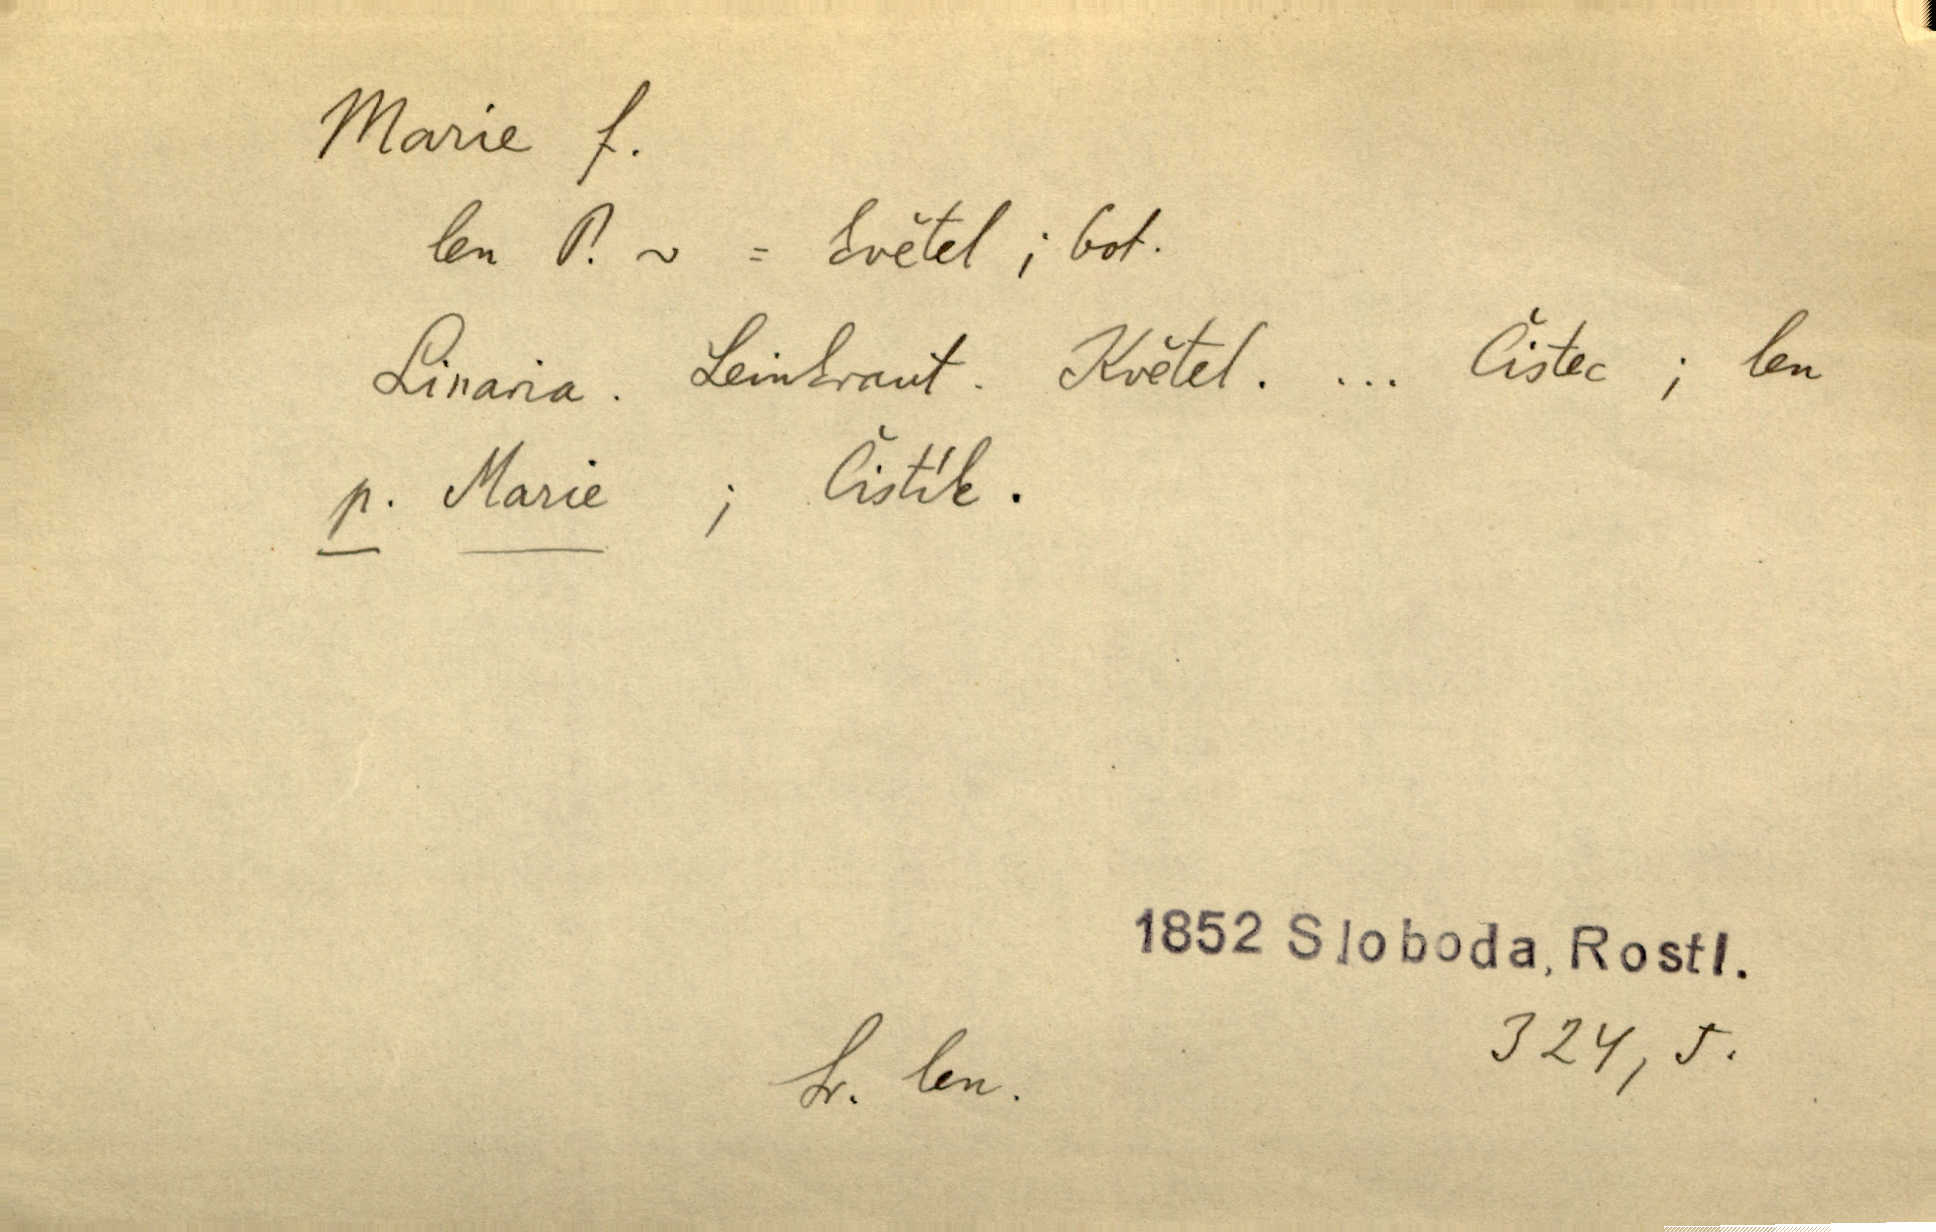 Marie f.
len P. ~ = květel ; bot.
Linaria. Leinkraut. Květel. ... Čistec ; len
p. Marie ; Čistík.
1852 Sloboda, Rostl.
324, 5.
len.